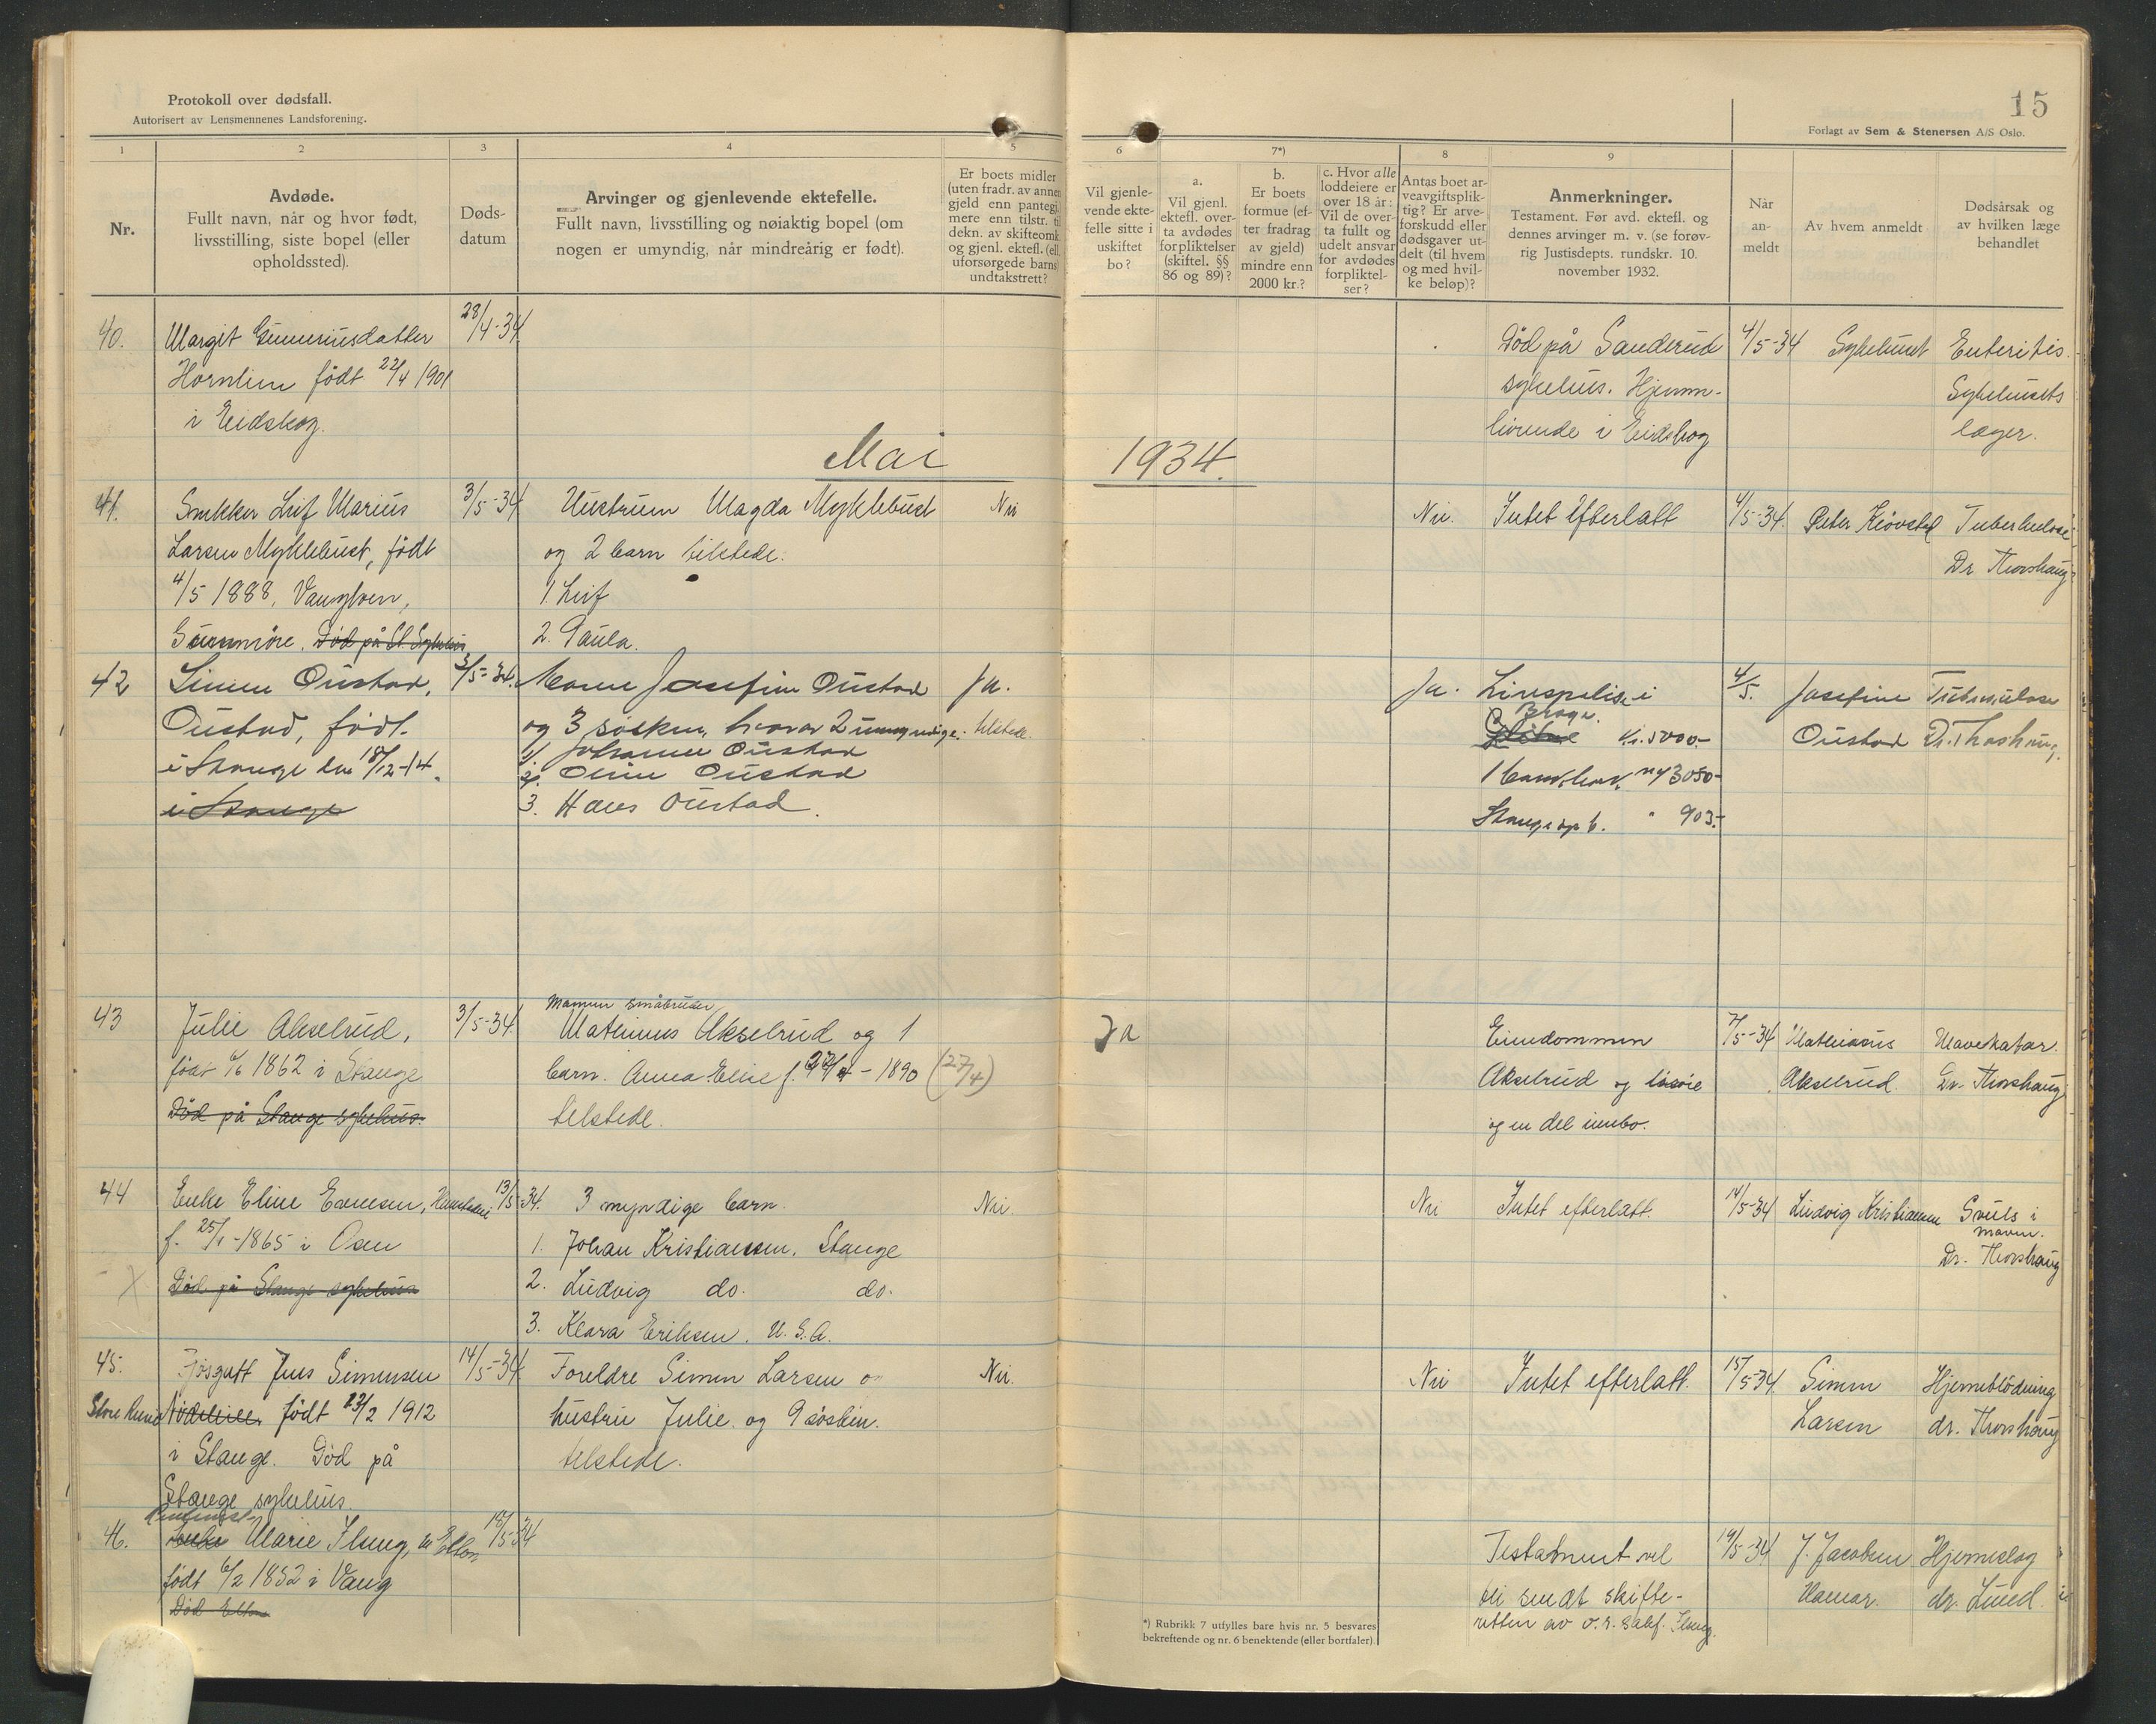 Protokoll over dødsfall.
Autorisert av Lensmennenes Landsforening.
15
Forlagt av Sem & Stenersen A/S Oslo.
1
2
3
4
5
6
7*)
8
9
Nr.
Avdøde.
Fullt navn, når og hvor født,
livsstilling, siste bopel (eller
opholdssted).
Døds-
datum
Arvinger og gjenlevende ektefelle.
Fullt navn, livsstilling og nøiaktig bopel (om
nogen er umyndig, når mindreårig er født).
Er boets midler
(uten fradr. av annen
gjeld enn pantegj.)
mere enn tilstr. til
dekn. av skifteomk.
og gjenl. ektefl. (ell.
uforsørgede barns)
undtakstrett?
Vil gjenle-
vende ekte-
felle sitte i
uskiftet
bo?
a.
Vil gjenl.
ektefl. over-
ta avdødes
forpliktelser
(skiftel. §§
86 og 89)?
b.
Er boets
formue (ef-
ter fradrag
av gjeld)
mindre enn
2000 kr.?
c. Hvor alle
loddeiere er
over 18 år:
Vil de over-
ta fullt og
udelt ansvar
for avdødes
forpliktel-
ser?
Antas boet ar-
veavgiftsplik-
tig? Er arve-
forskudd eller
dødsgaver ut-
delt (til hvem
og med hvil-
ke beløp)?
Anmerkninger.
Testament. Før avd. ektefl. og
dennes arvinger m. v. (se forøv-
rig Justisdepts. rundskr. 10.
november 1932.
Når
an-
meldt
Av hvem anmeldt
Dødsårsak og
av hvilken læge
behandlet
40. Margit Gunneriusdatter 28/4-34 Død på Sanderud 4/5-34 Sykehuset Enteritis.
født 22/4 1901 sykehus. Hjemm- Sykehusets
i Eidskog. hørende i Eidskog læger.
Mai 1934.
41. Snekker Leif Marius 3/5-34 Hustruen Magda Myklebust Nei Nei. Intet efterlatt 4/5-34. Peter Tuberkulose
Larsen Myklebust, født og 2 barn tilstede. Dr Thorshaug
4/5 1888, 1. Leif
Sunnmøre. Død på St. Sykehus 2. Paula.
42 Oustad, 3/5-34. Josefine Oustad Ja. Ja. Livspolise i 4/5. Josefine Tuberkulose
Oustad, født og 3 søsken, hvorav 2 umyndige. tilstede. Brage. kr. 5000.- Oustad Dr. Thorshaug.
i Stange den 18/12-14. 1) Johanne Oustad
2. Oustad 1 bankbok 3050-
i Stange 3. Hans Oustad. Stange spb. " 903.-
43 Julie Akselrud, 3/5-34. Mannen småbruker
Mathinus Akselrud og 1 Ja Eiendommen 7/5-34 Mathinus Mavekatar.
født 1/6 1862 i Stange barn. Anna Elise f. 27/4-1890 (27/4) Akselrud og løsøre Akselrud. Dr. Thorshaug
Død på Stange sykehus. tilstede. og en del innbo.
44 Enke Eline Evensen, 13/5-34. 3 myndige barn. Nei. Nei Intet efterlatt. 14/5-34 Ludvig Kristiansen Svuls i
maven.
f. 25/1-1865 i Osen 1. Johan Kristiansen, Stange Dr. Thorshaug
Død på Stange sykehus 2. Ludvig do. do.
3. Klara Eriksen, U.S.A.
45. Fjøsgutt Jens Simensen 14/5-34 Foreldre Simen Larsen o Nei. Nei Intet efterlatt. 15/5-34. Simen Hjerneblødning
Store født 23/2 1912 hustru Julie og 9 søsken. Larsen dr. Thorshaug
i Stange. Død på tilstede.
Stange sykehus.
46. Enke Marie Ilseng, 18/5-34 Testament vil 19/5-34 J. Jacobsen Hjerneslag
født 6/2 1852 i Vang bli sendt skifte- Hamar. dr. Lund.
Død retten av o.r. sakf. Ilseng.
*) Rubrikk 7 utfylles bare hvis nr. 5 besvares
bekreftende og nr. 6 benektende (eller bortfaler)